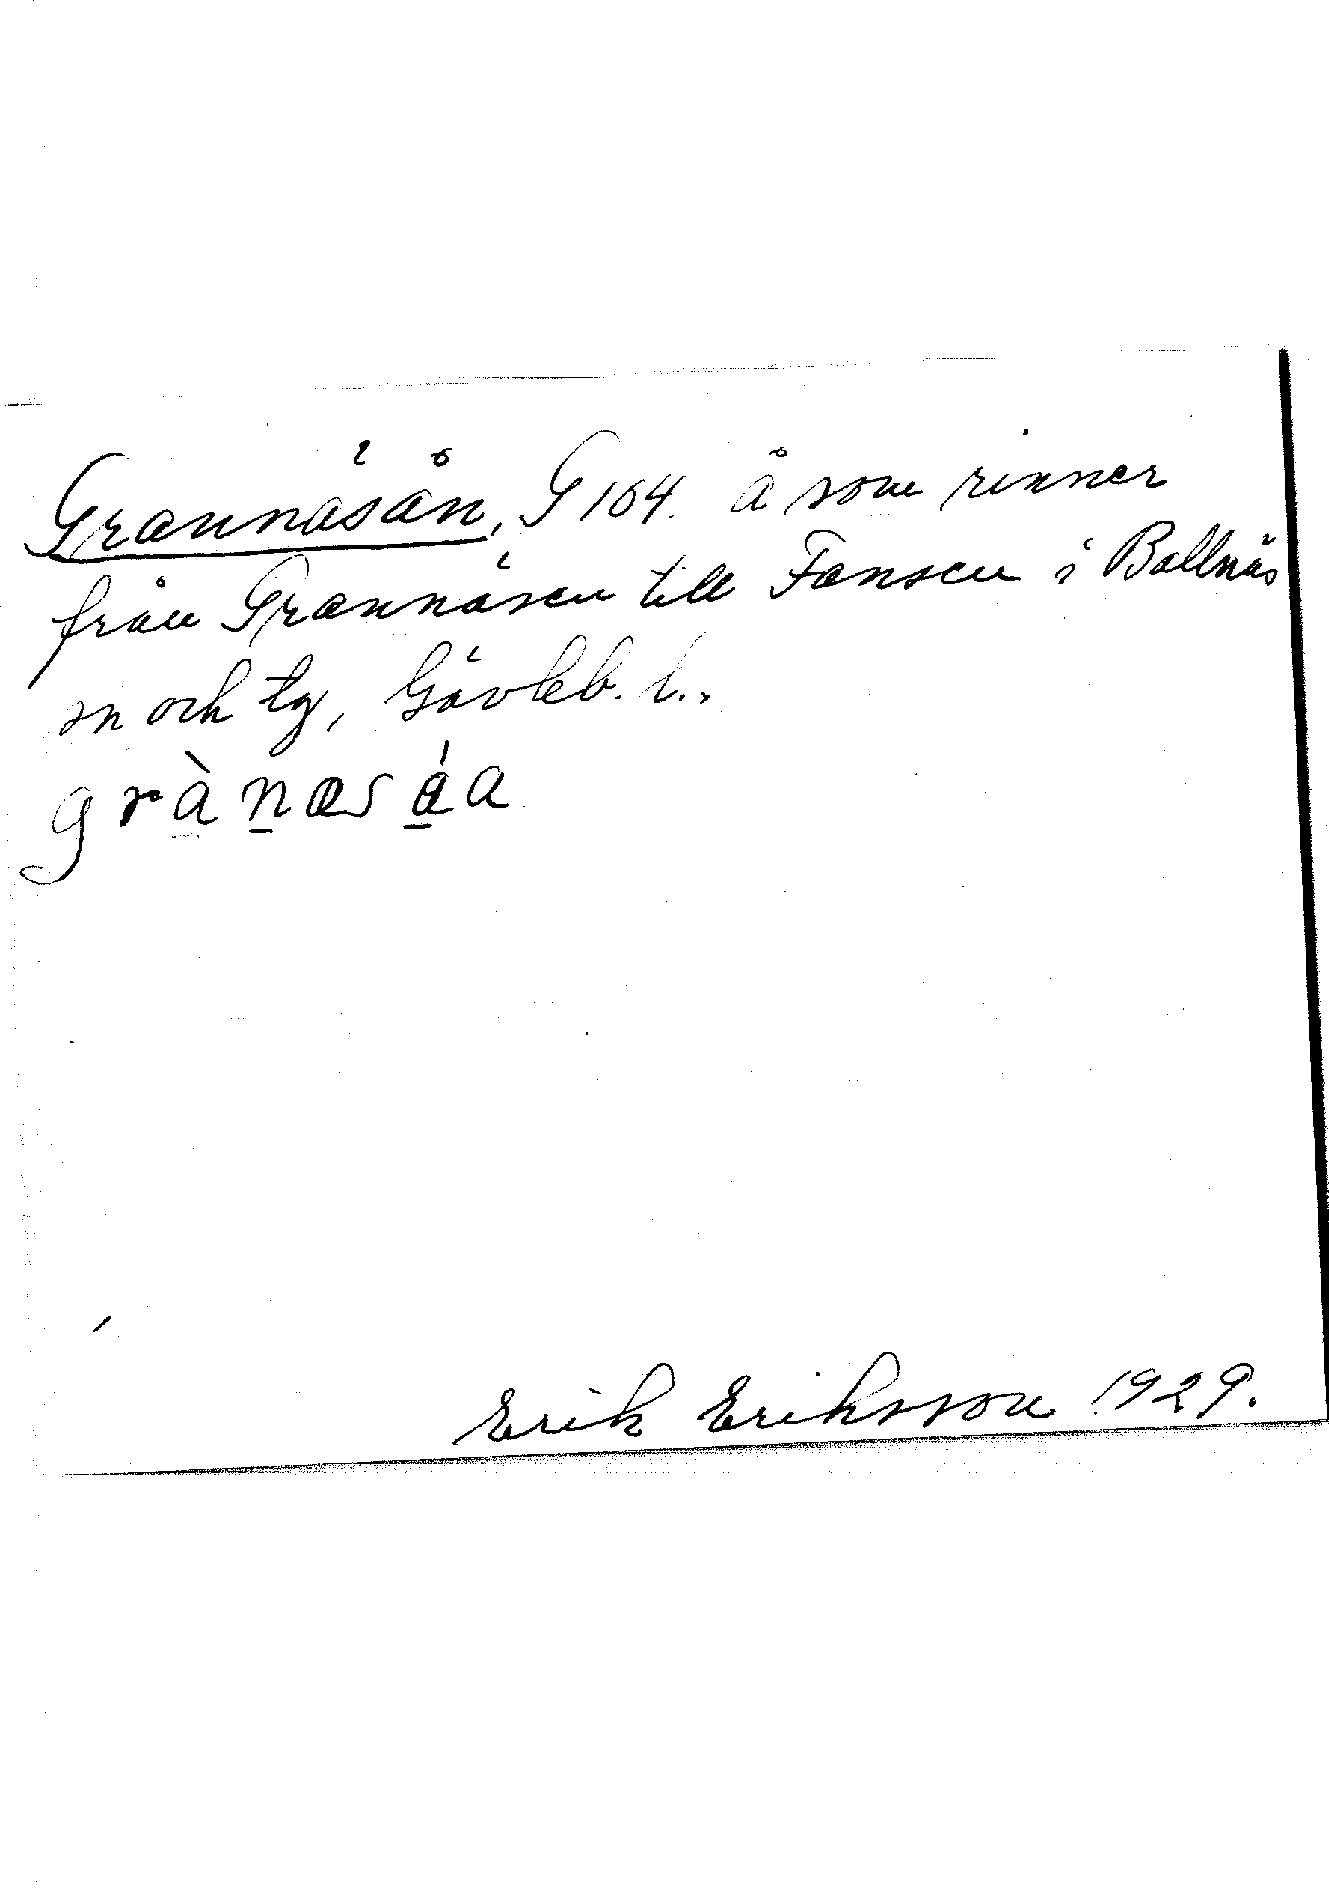 Grannäsån, G 104. Å som rinner
från Grannäsen till Fansen i Bollnäs
sn och tg, Gävleb. l.,
grànæsáa
Erik Eriksson 1929.